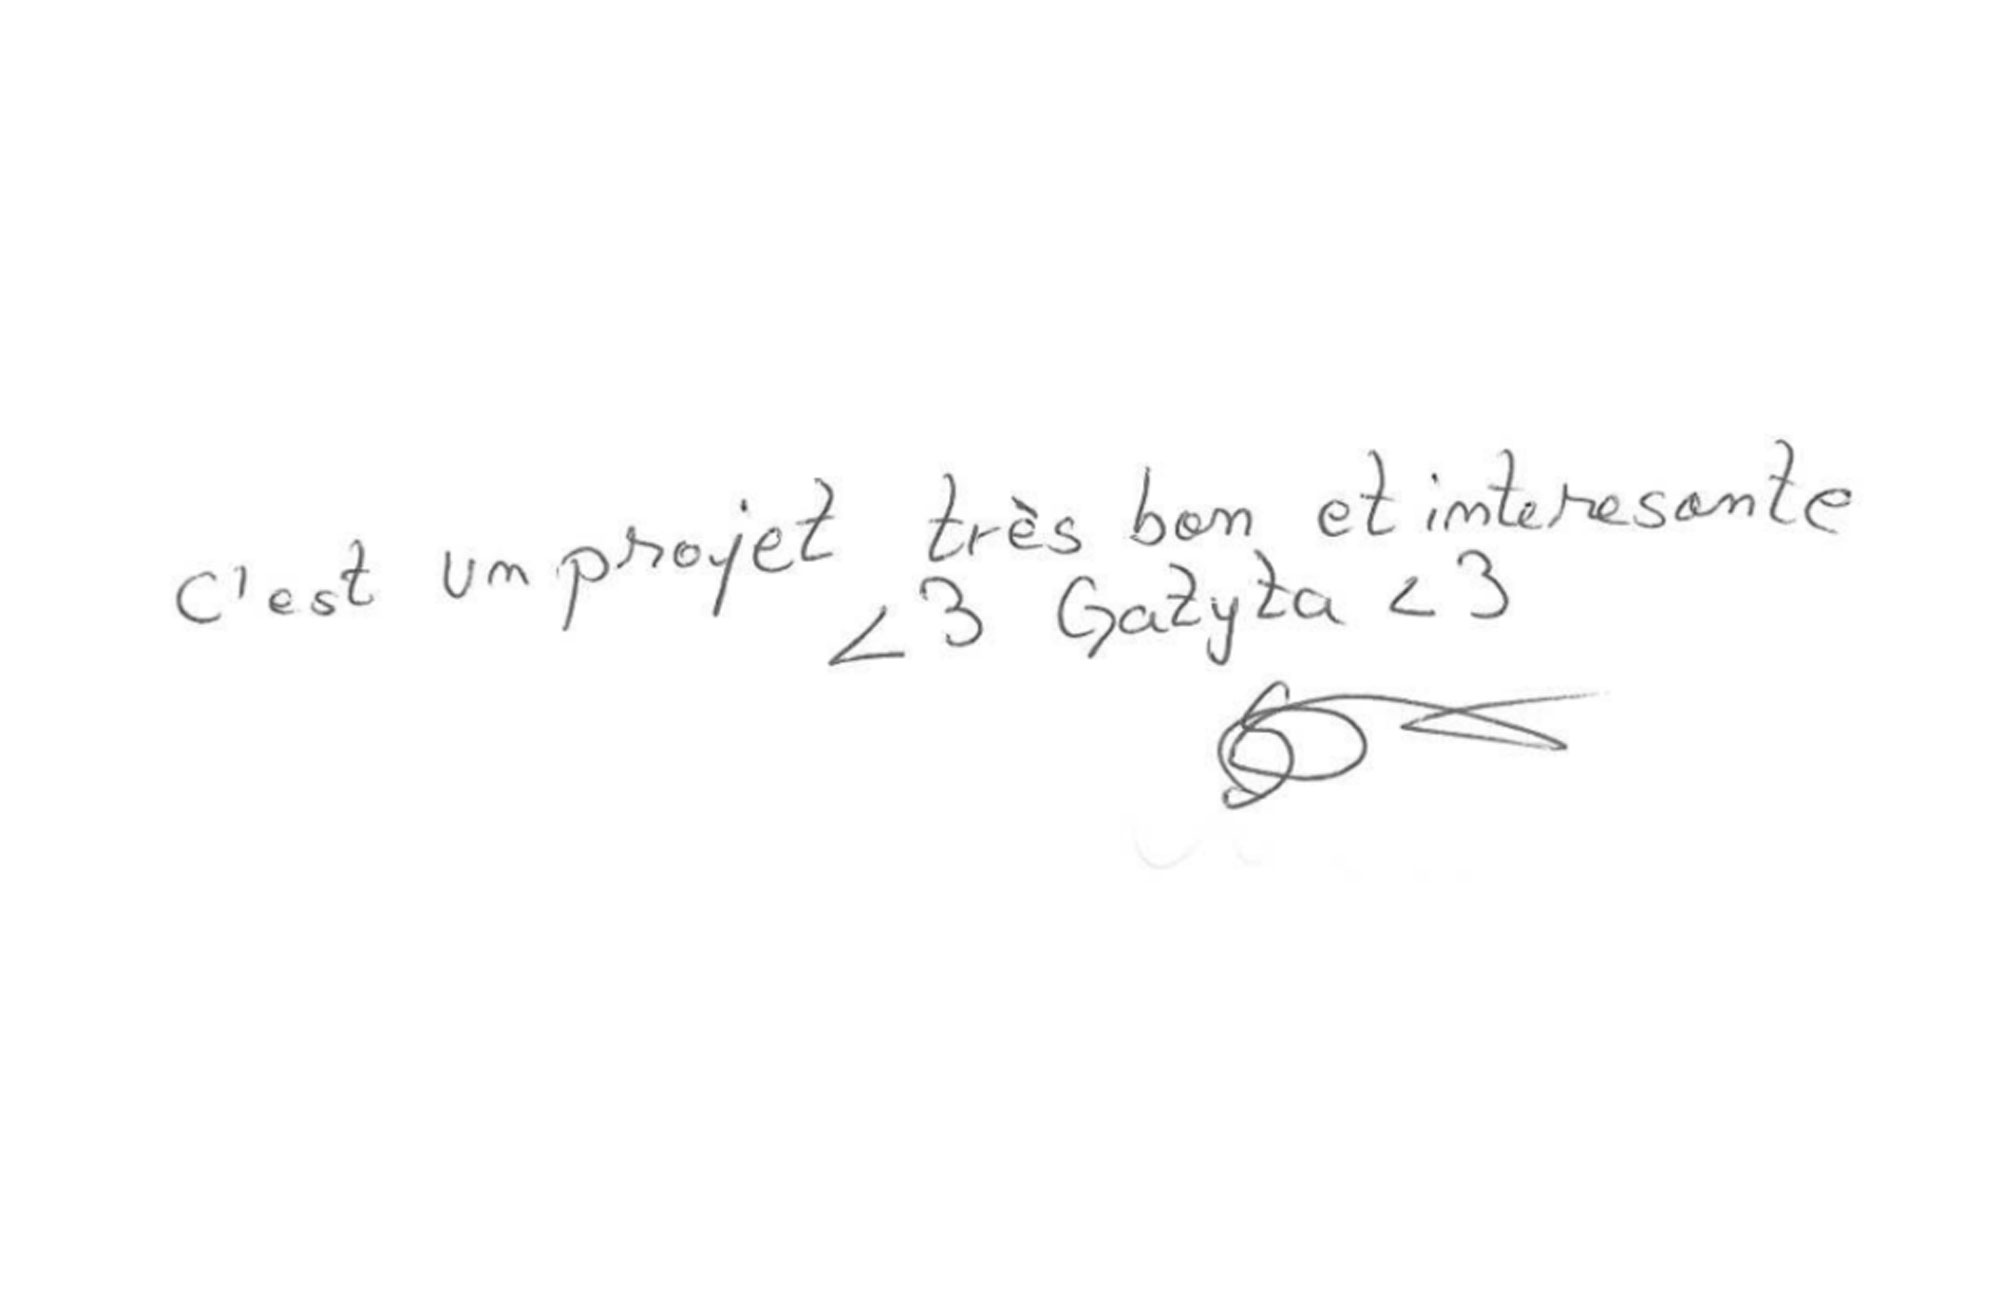 C'est un projet très bon et interesante
<3 Gazyta <3